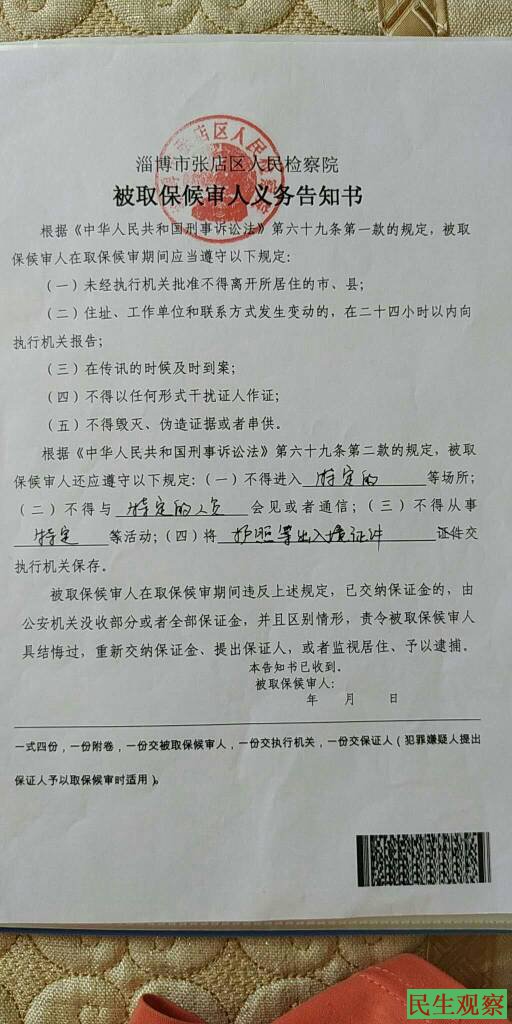 淄博市张店区人民检察院
被取保候审人义务告知书
根据《中华人民共和国刑事诉讼法》第六十九条第一款的规定，被取
保候审人在取保候审期间应当遵守以下规定：
（一）未经执行机关批准不得离开所居住的市、县；
（二）住址、工作单位和联系方式发生变动的，在二十四小时以内向
执行机关报告；
（三）在传讯的时候及时到案；
（四）不得以任何形式干扰证人作证；
（五）不得毁灭、伪造证据或者串供。
根据《中华人民共和国刑事诉讼法》第六十九条第二款的规定，被取
保候审人还应遵守以下规定：（一）不得进入 特定的 等场所；
（二）不得与 特定的人员 会见或者通信；（三）不得从事
特定 等活动；（四）将 护照等出入境证件 证件交
执行机关保存。
被取保候审人在取保候审期间违反上述规定，已交纳保证金的，由
公安机关没收部分或者全部保证金，并且区别情形，责令被取保候审人
具结悔过，重新交纳保证金、提出保证人，或者监视居住、予以逮捕。
本告知书已收到。
被取保候审人：
年 月 日
一式四份，一份附卷，一份交被取保候审人，一份交执行机关，一份交保证人（犯罪嫌疑人提出
保证人予以取保候审时适用）。
民生观察